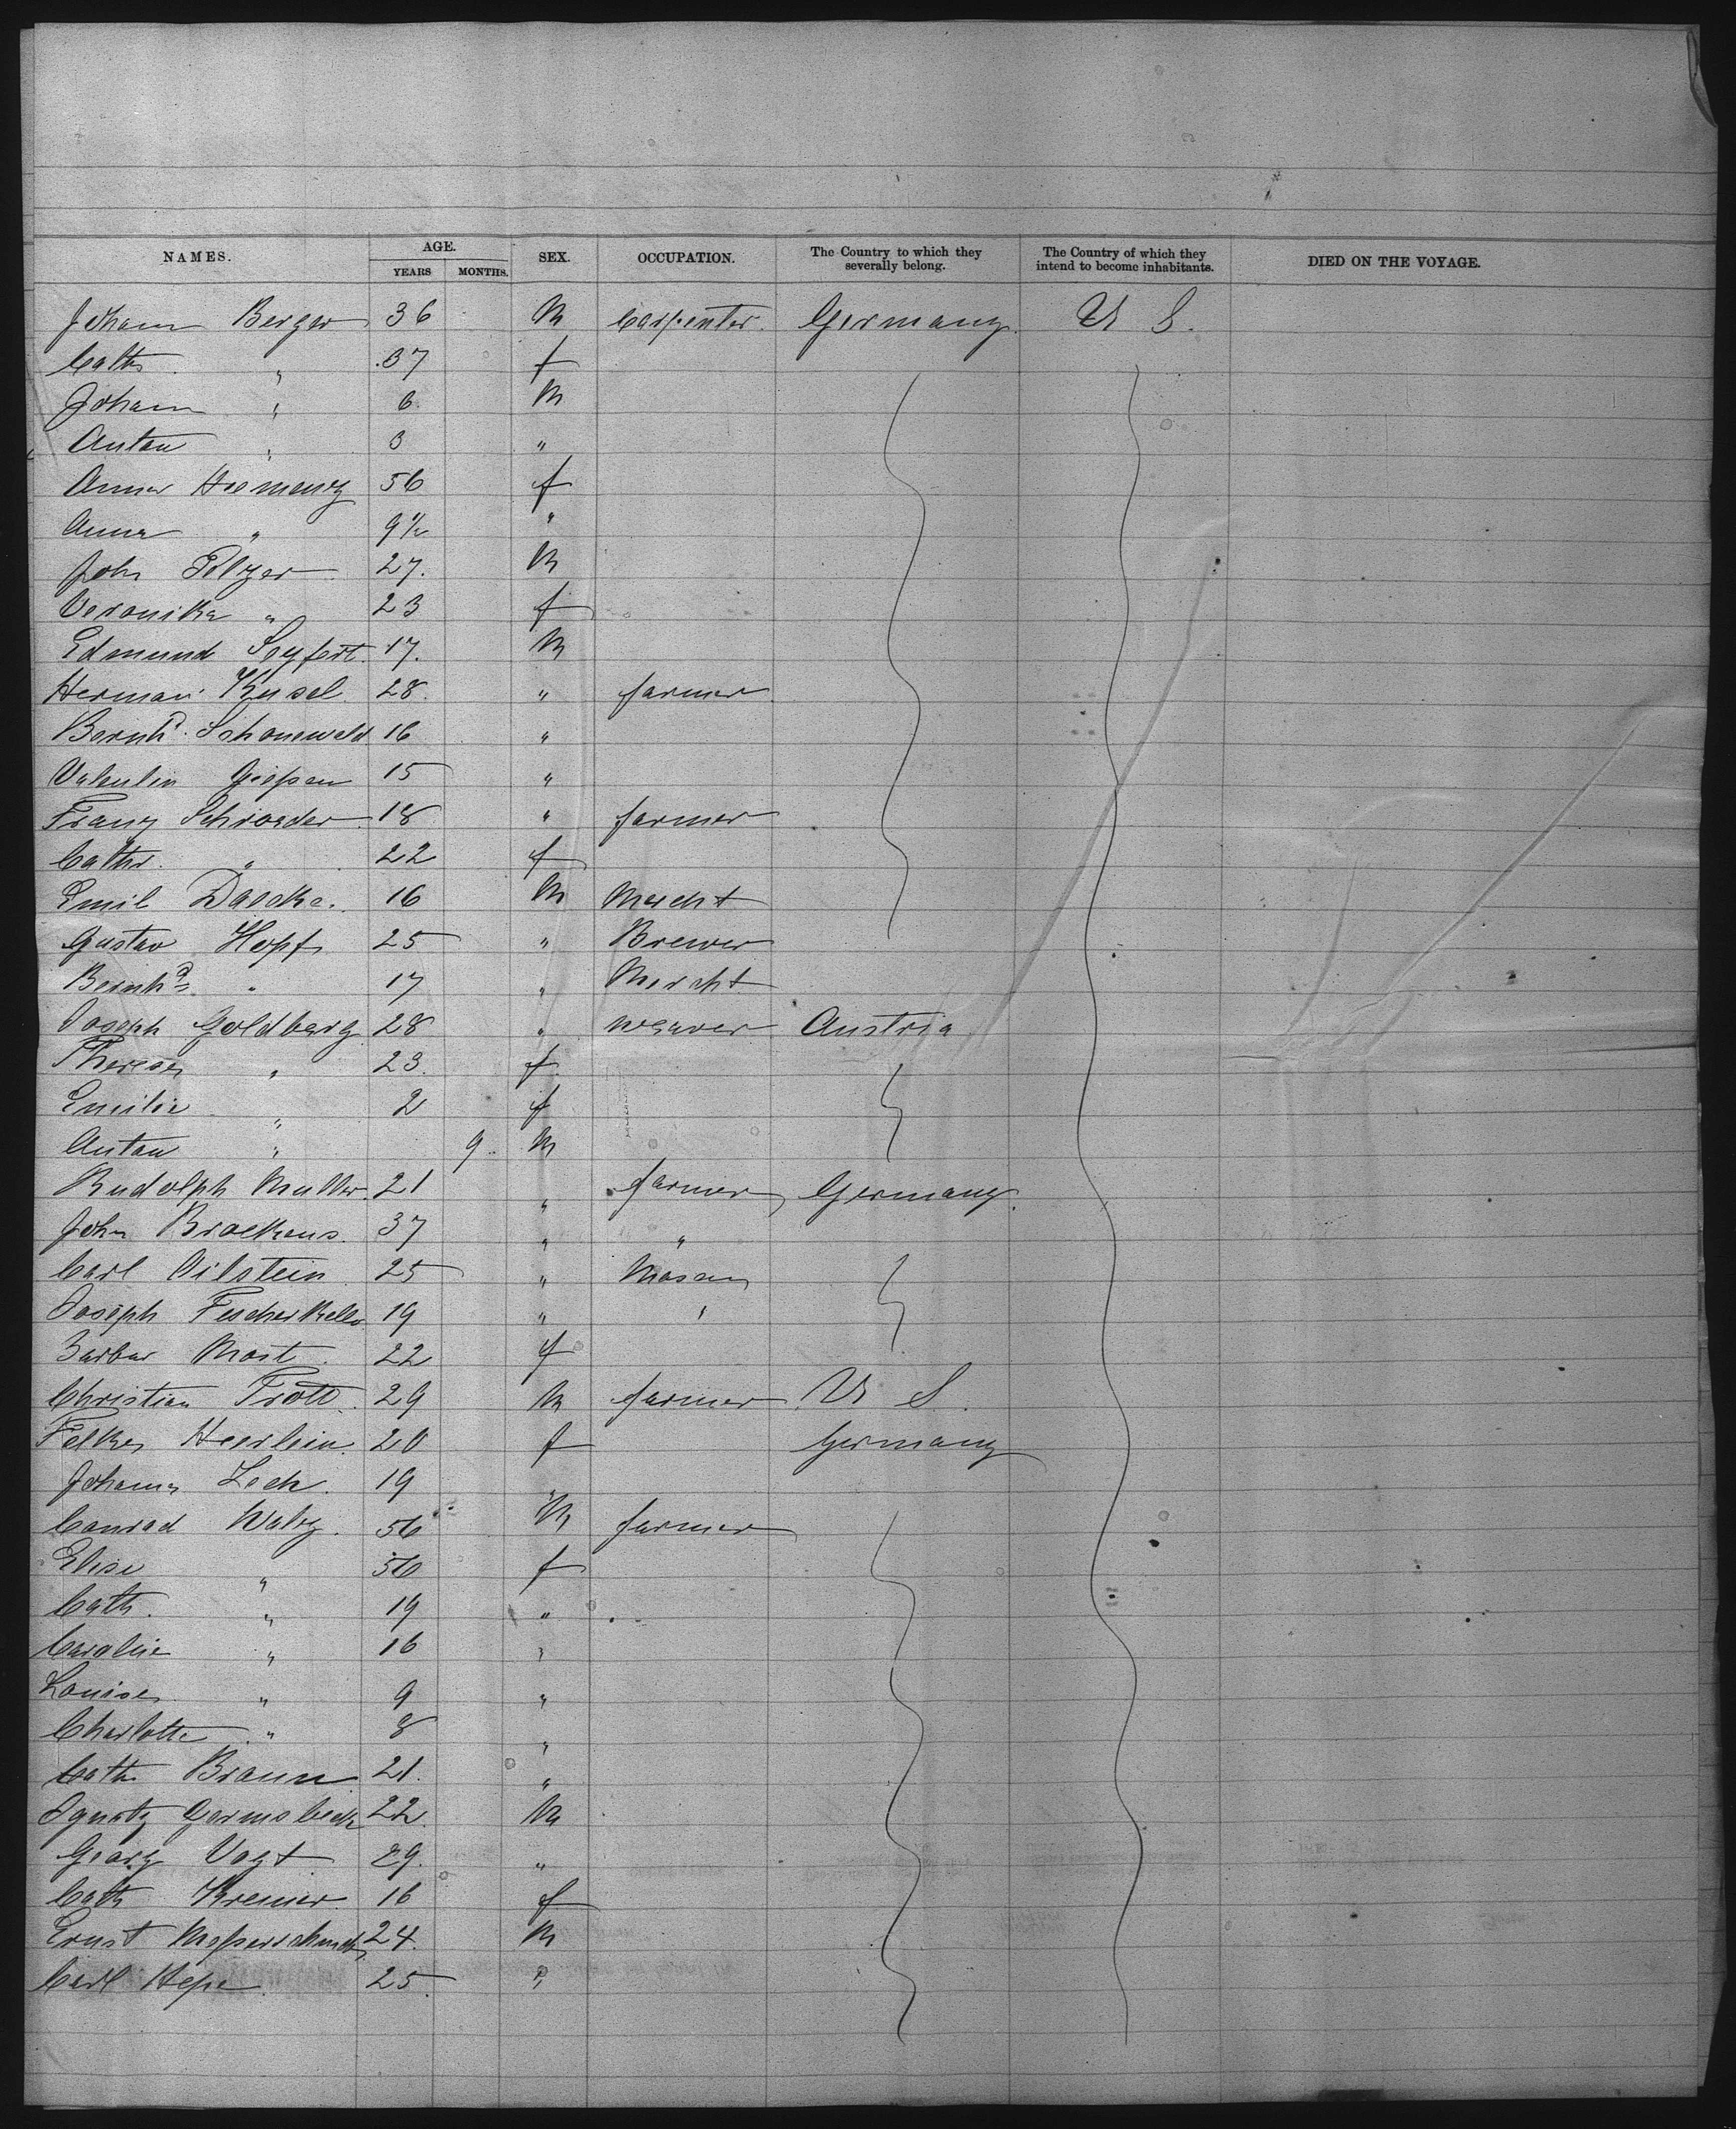 NAMES. AGE. SEX. OCCUPATION. The Country to which they severally belong. The Country of which they intend to become inhabitants. DIED ON THE VOYAGE.
YEARS MONTHS.
Joham Berger 36 M Carpenter. Germany. U S.
Cath. " 37 f
Joham " 6. M
Anton " 3 "
Anna 56 f
Anna " 9 1/2 "
John Pelzer 27. M
Veronika " 23 f
Edmund Seyfert. 17. M
Herman Kusel 28. " farmer
Bernhd. Schonewald 16 "
Valentin 15 "
Franz Schroeder 18 " farmer
Cathr. " 22 f
Emil Daecke. 16 M Mercht
Gustav Hopf 25 " Brewer
Bernhd. " 17 " Mercht
Joseph Goldberg 28 " weaver Austria
Therese " 23. f
Emilie " 2 f
Anton " 9. M
Rudolph Muller. 21 " farmer Germany.
John 37 " "
Carl Oilstein 25 " Mason
Joseph 19 " "
Barbar Most. 22 f
Christian Trott. 29 M farmer U S.
Heerlein. 20 f Germany
Johanna Zech. 19 "
Conrad Walz. 56 M farmer
Elise " 50 f
Cath. " 19 "
Caroline " 16 "
Louise " 9 "
Charlotte " 8 "
Cath. Braun 21. "
Ignatz 22. M
Georg Vogt 29. "
Cath Kremer. 16 f
Ernst Messerschmidt 24. M
Carl Hepe. 25. "